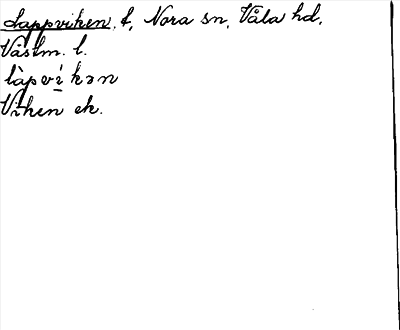 Lappviken, t, Nora sn, Våla hd,
Västm. l.
làpvíkən
Viken ek.